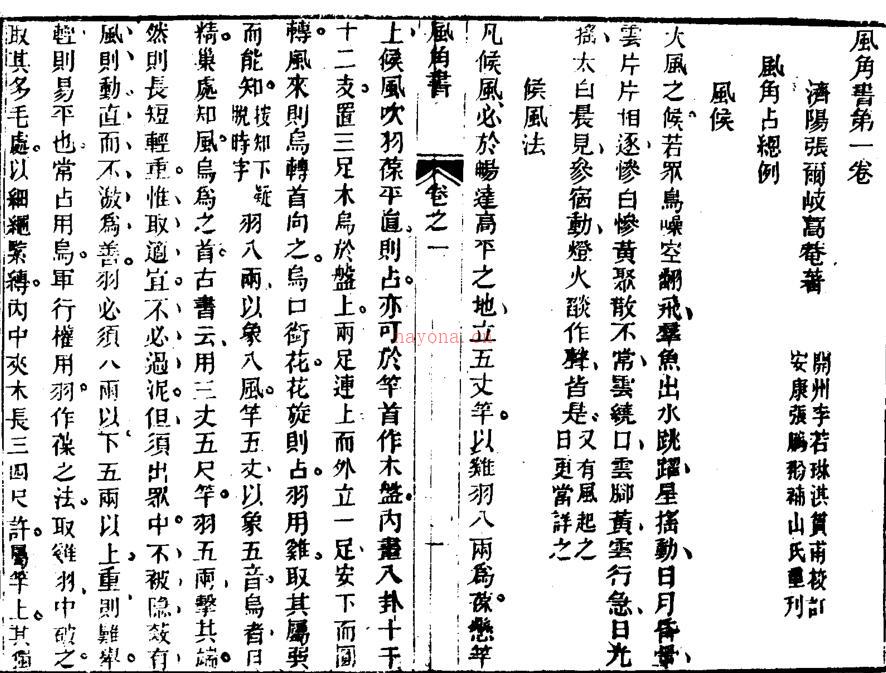 風角書第一卷
濟陽張爾岐蒿菴著
開州李若琳淇篔甫校訂
安康張鵬翂補山氏重刊
風角占總例
風候
大風之候若眾鳥噪空翻飛羣魚出水跳躍星搖動日月昏暈
雲片片相逐慘白慘黃聚散不常雲繞口雲腳黃雲行急日光
搖太白晨見參宿動燈火燄作聲皆是又有風起之日更當詳之
候風法
凡候風必於暢達高平之地立五丈竿以雞羽八兩爲葆懸竿
風角書 卷之一 一
上候風吹羽葆平直則占亦可於竿首作木盤內畫八卦十干
十二支置三足木烏於盤上兩足連上而外立一足安下而圓
轉風來則烏轉首向之烏口銜花花旋則占羽用雞取其屬巽
而能知按知下疑脫時字羽八兩以象八風竿五丈以象五音烏者日
精巢處知風烏爲之首古書云用三丈五尺竿羽五兩擊其端
然則長短輕重惟取適宜不必過泥但須出眾中不被隱蔽有
風則動直而不激爲善羽必須八兩以下五兩以上重則難舉
輕則易平也常占用烏軍行權用羽作葆之法取雞羽中破之
取其多毛處以細繩緊縛內中夾木長三四尺許屬竿上其獨
hayonai.cn